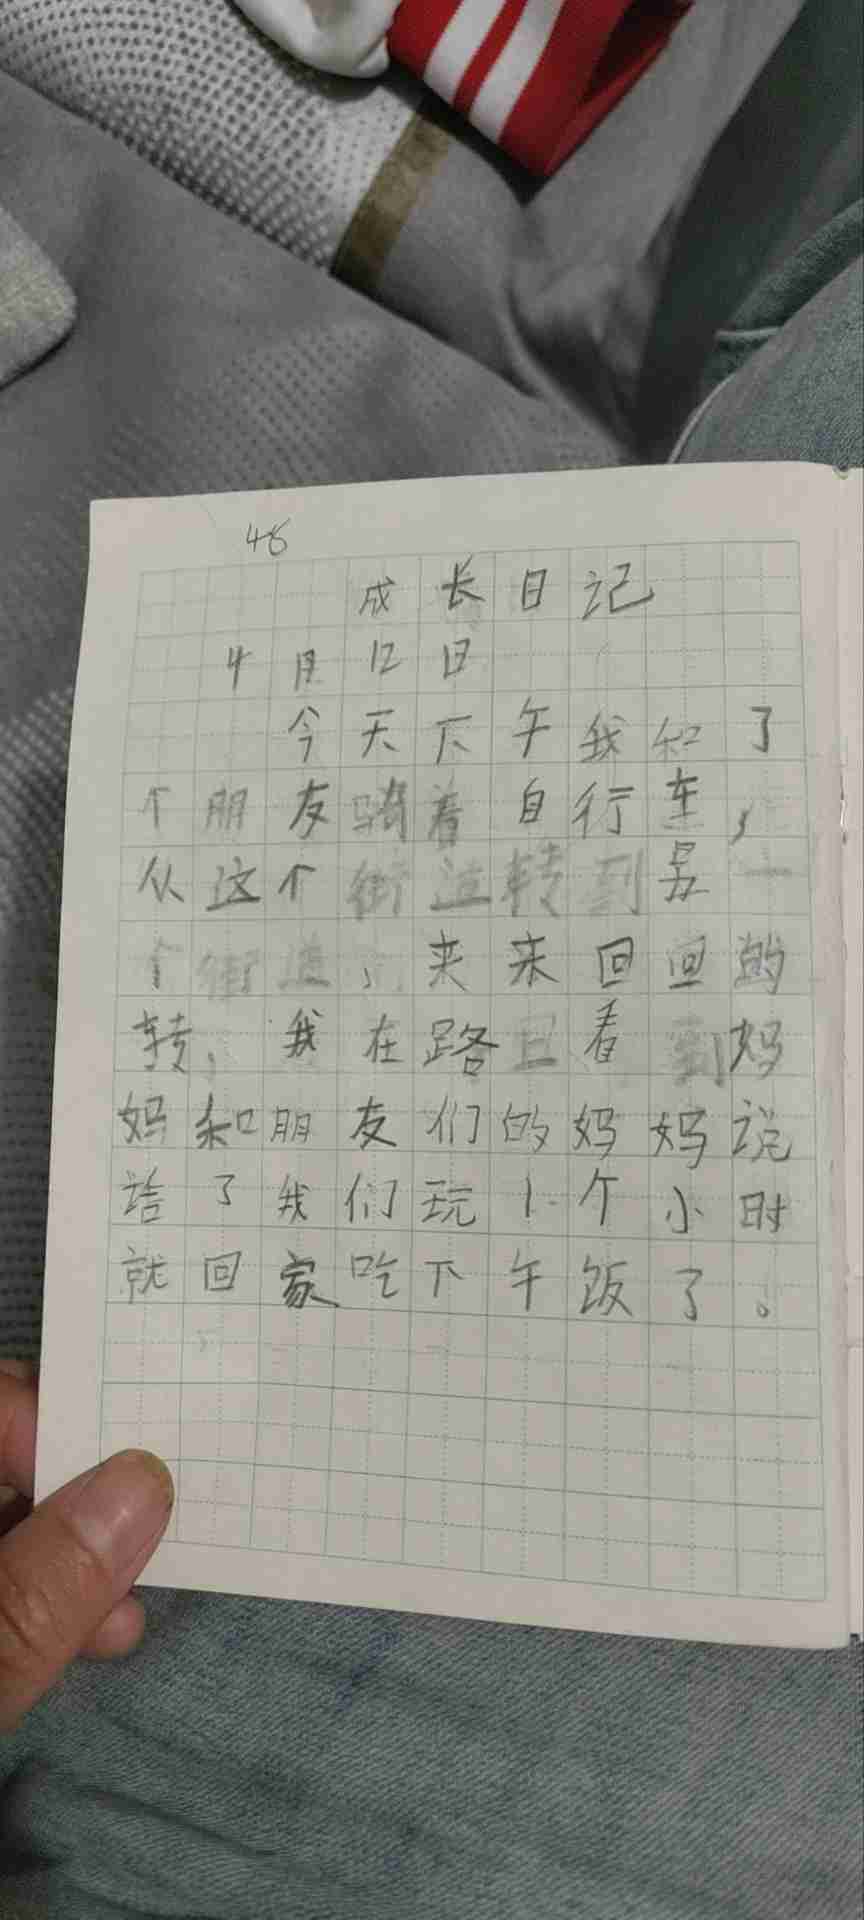 48
成长日记
4月12日
今天下午我和了
个朋友骑着自行车，
从这个街道转到另一
个街道，来来回回的
转，我在路旦看到妈
妈和朋友们的妈妈说
话了我们玩1个小时
就回家吃下午饭了。